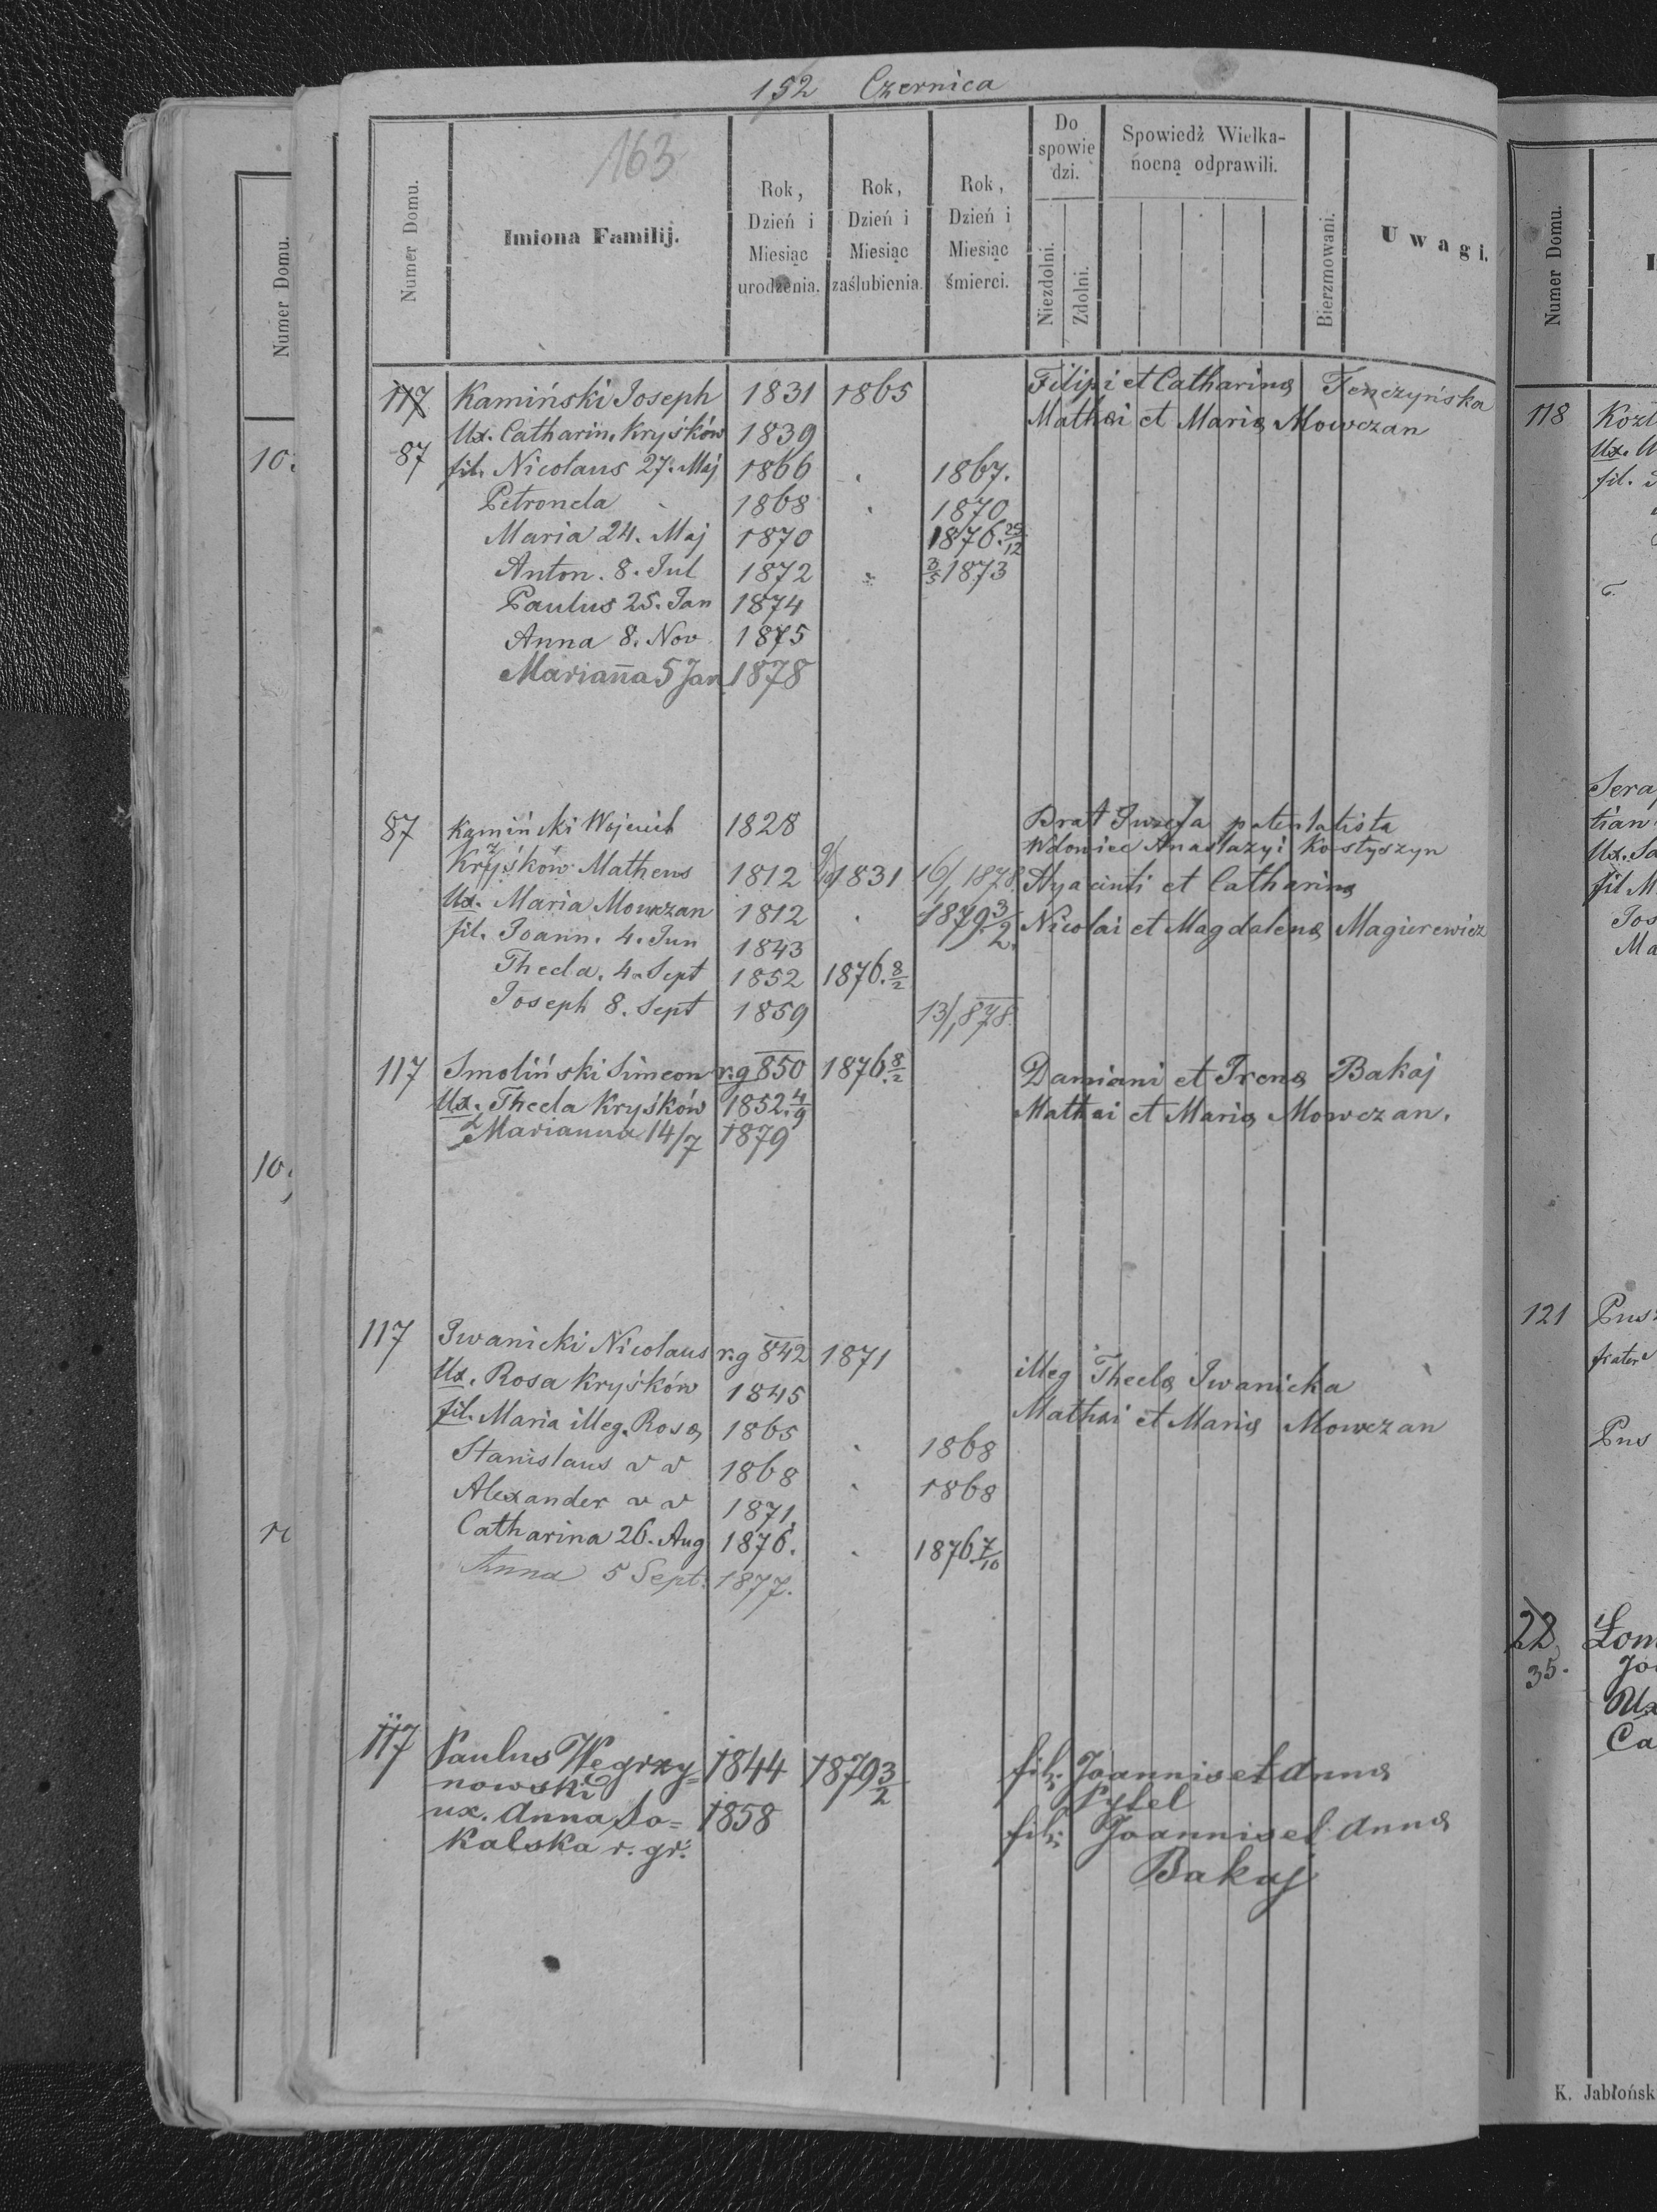 152 Czernica
163
Numer Domu.
Imiona Familij.
Rok, Dzień i Miesiąc urodzenia.
Rok, Dzień i Miesiąc zaślubienia.
Rok, Dzień i Miesiąc śmierci.
Do spowiedzi.
Niezdolni.
Zdolni.
Spowiedź Wielkańocną odprawili.
Bierzmowani.
Uwagi.
117 Kamiński Joseph 1831 1865 Filipi et Catharinæ Tenczyńska
Ux. Catharin. Kryśków 1839 Mathæi et Mariæ Mowczan
87 fil. Nicolaus 27. Maj 1866 1867.
Petronela 1868 1870
Maria 24. Maj 1870 1876. 25/12
Anton. 8. Jul 1872 3/5 1873
Paulus 25. Jan 1874
Anna 8. Nov 1875
Mariana 5 Jan 1878
87 Kamiński Wojciech 1828 Brat Juzefa patentalista
Wdowiec Anastazyi Kostyszyn
Kryśków Matheus 1812 1831 16/1 1878. Hyacinti et Catharinæ
Ux. Maria Mowczan 1812 1879 3/2. Nicolai et Magdalenæ Magierewicz
fil. Joann. 4. Jun 1843
Thecla. 4. Sept 1852 1876. 8/2
Joseph 8. Sept 1859 13/1 878.
117 Smoliński Simeon r.g 850 1876. 8/2 Damiani et Irenæ Bakaj
Ux. Thecla Kryśków 1852. 4/9 Mathæi et Mariæ Mowczan.
Marianna 14/7 1879
117 Iwanicki Nicolaus r.g 842 1871 illeg Theclæ Iwanicka
Ux. Rosa Kryśków 1845 Mathæi et Mariæ Mowczan
fil. Maria illeg. Rosæ 1865 1868
Stanislaus v v 1868 1868
Alexander v v 1871.
Catharina 26. Aug 1876. 1876 7/10
Anna 5 Sept. 1877.
117 Paulus Węgrzy= 1844 1879 3/2 fil. Joannis et Annæ
nowski Pytel
ux. Anna So= 1858 fil. Joannis et Annæ
kalska r. gr. Bakaj
Numer Domu.
10
10
Numer Domu.
118 Kozl
Ux.
fil.
Sera
tian
Ux. Sa
fil M
Jos
Ma
121 Pus
frater
Pus
28 Łom
35. Jo
Ux
Ca
K. Jabłońsk